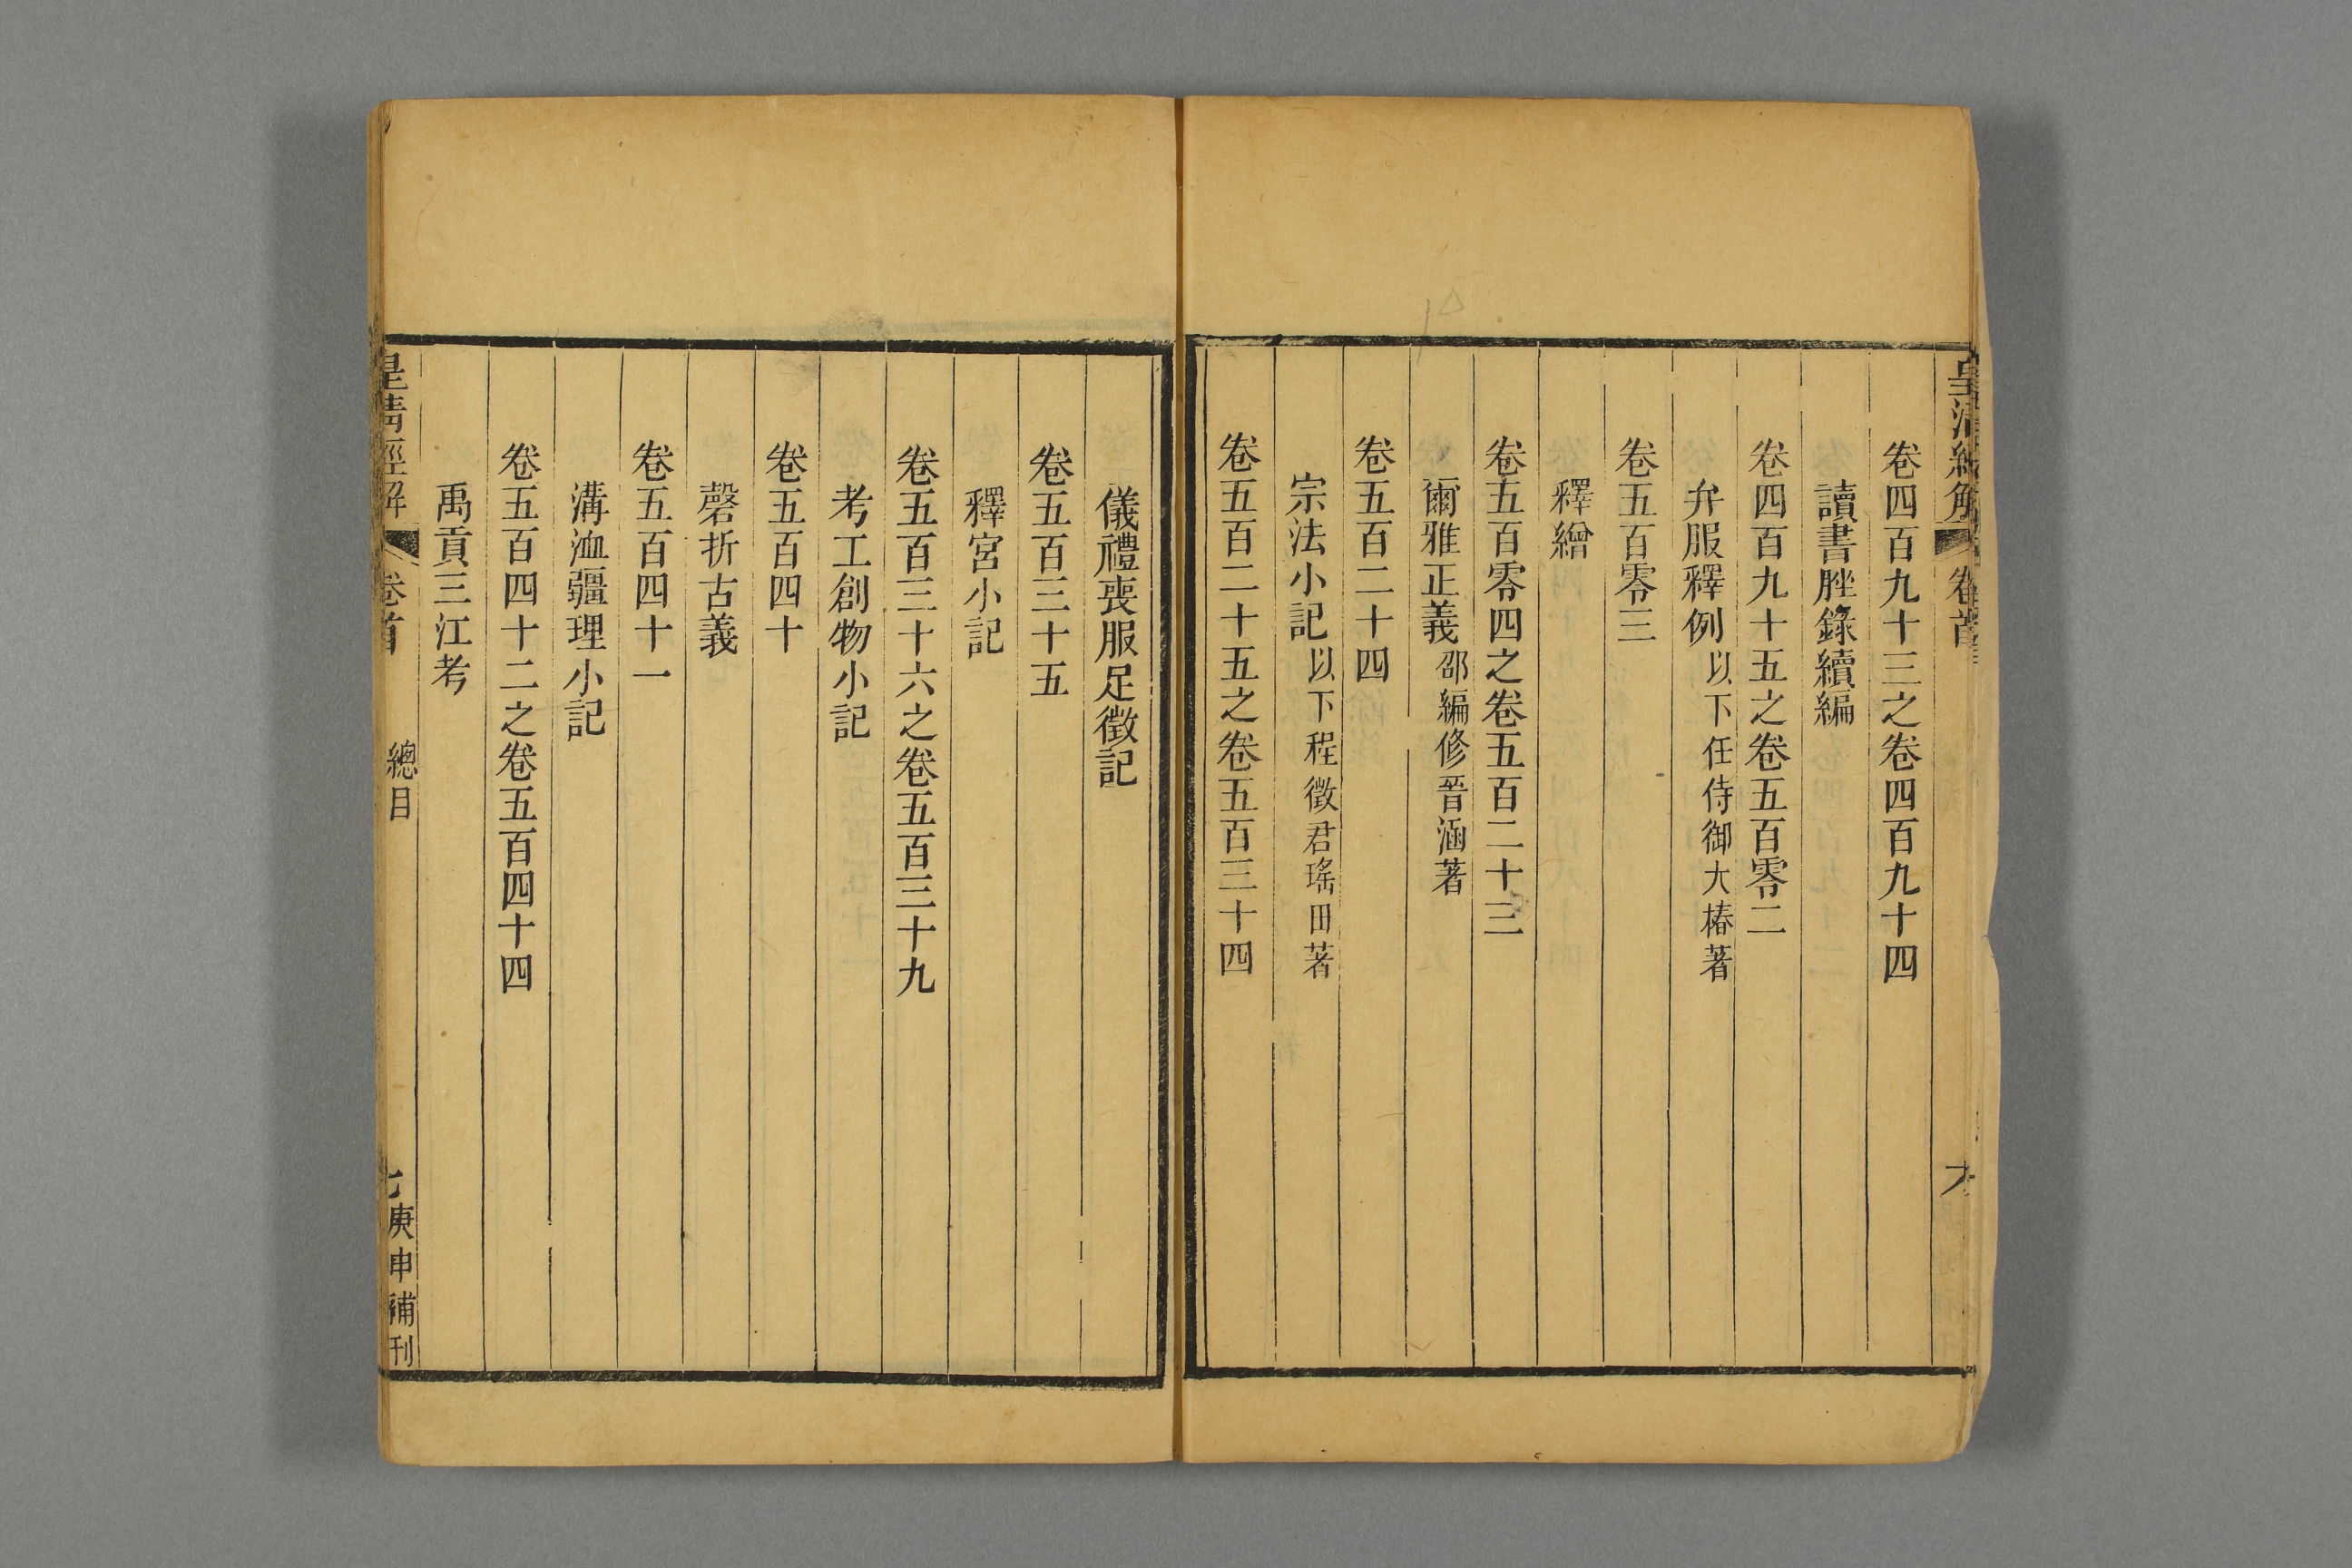 皇清經解 卷首
卷四百九十三之卷四百九十四
讀書脞錄續編
卷四百九十五之卷五百零二
弁服釋例 以下任侍御大椿著
卷五百零三
釋繒
卷五百零四之卷五百二十三
爾雅正義 邵編修晉涵著
卷五百二十四
宗法小記 以下程徵君瑤田著
卷五百二十五之卷五百三十四
儀禮喪服足徵記
卷五百三十五
釋宮小記
卷五百三十六之卷五百三十九
考工創物小記
卷五百四十
磬折古義
卷五百四十一
溝洫疆理小記
卷五百四十二之卷五百四十四
禹貢三江考
皇清經解 卷首 總目 庚申補刊